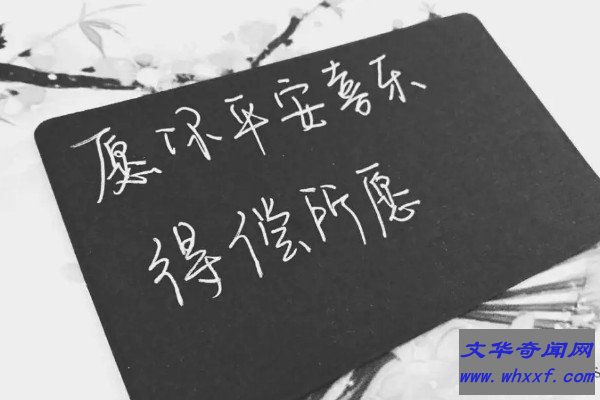 愿你平安喜乐
得偿所愿
文华奇闻网
www.whxxf.com